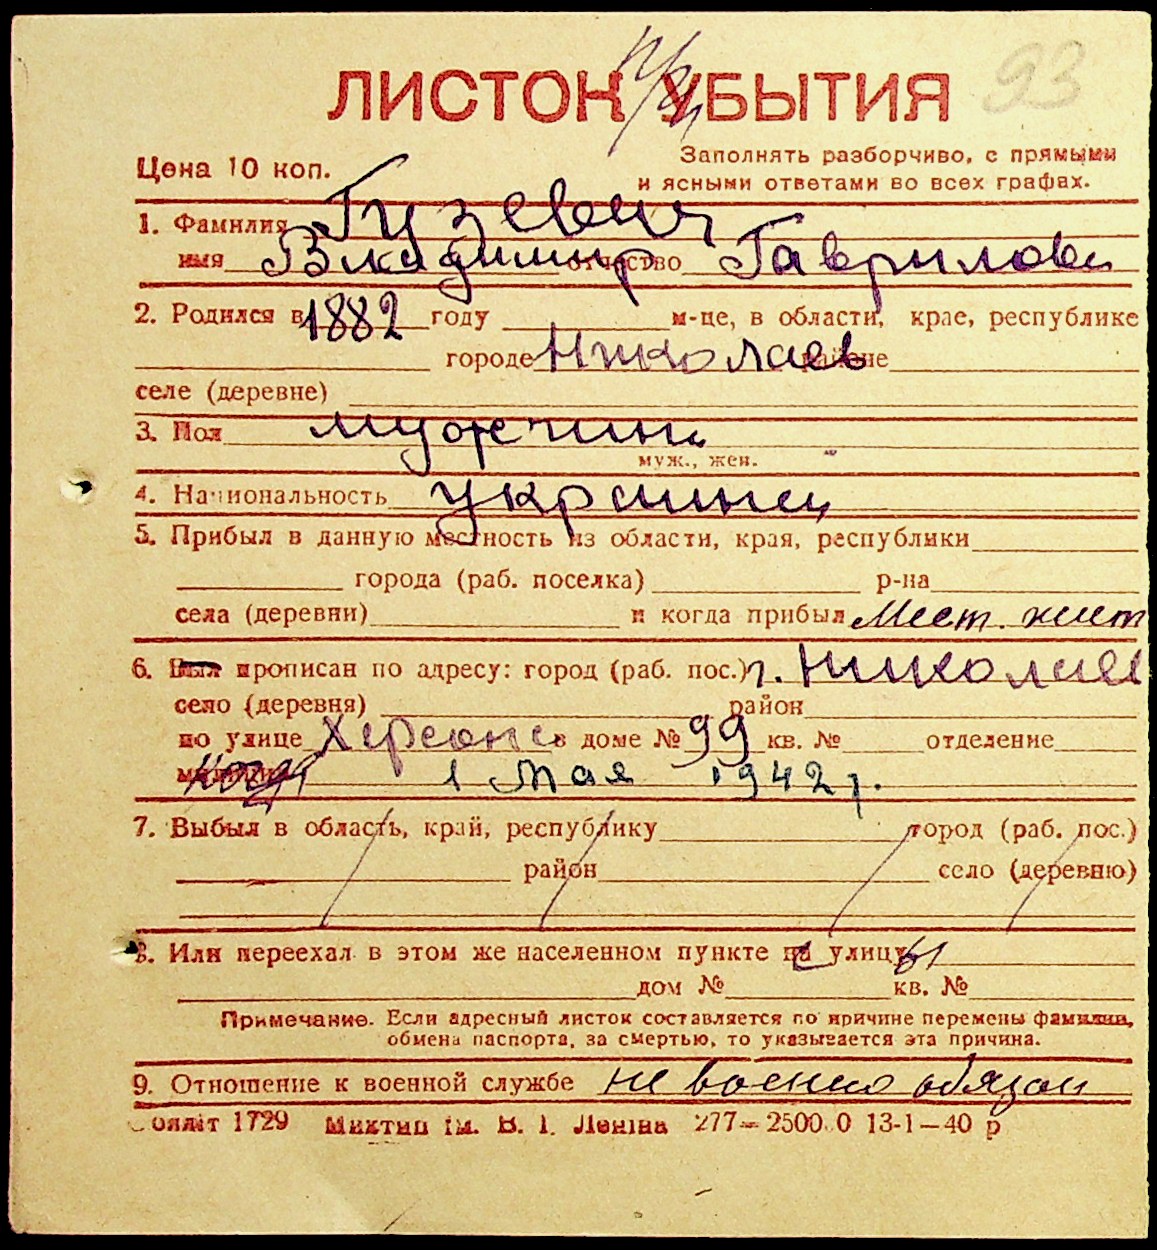 93
ЛИСТОК УБЫТИЯ
Цена 10 коп.
Заполнять разборчиво, с прямыми
и ясными ответами во всех графах.
1. Фамилия Гузевич
имя Владимир отчество Гаврилови
2. Родился в 1882 году м-це, в области, крае, республике
городе Николаев районе
селе (деревне)
3. Пол мужчина
муж., жен.
4. Национальность украинец
5. Прибыл в данную местность из области, края, республики
города (раб. поселка) р-на
села (деревни) и когда прибыл Мест. жит
6. Был прописан по адресу: город (раб. пос.) г. Николаев
село (деревня) район
по улице Херсонс в доме № 99 кв. № отделение
милиции когда 1 Мая 1942 г.
7. Выбыл в область, край, республику город (раб. пос.)
район село (деревню)
8. Или переехал в этом же населенном пункте на улицу
дом № кв. №
Примечание. Если адресный листок составляется по причине перемены фамилии,
обмена паспорта, за смертью, то указывается эта причина.
9. Отношение к военной службе не военно обязан
1729 Миктип ім. В. І. Леніна 277—2500.0 13-1—40 р